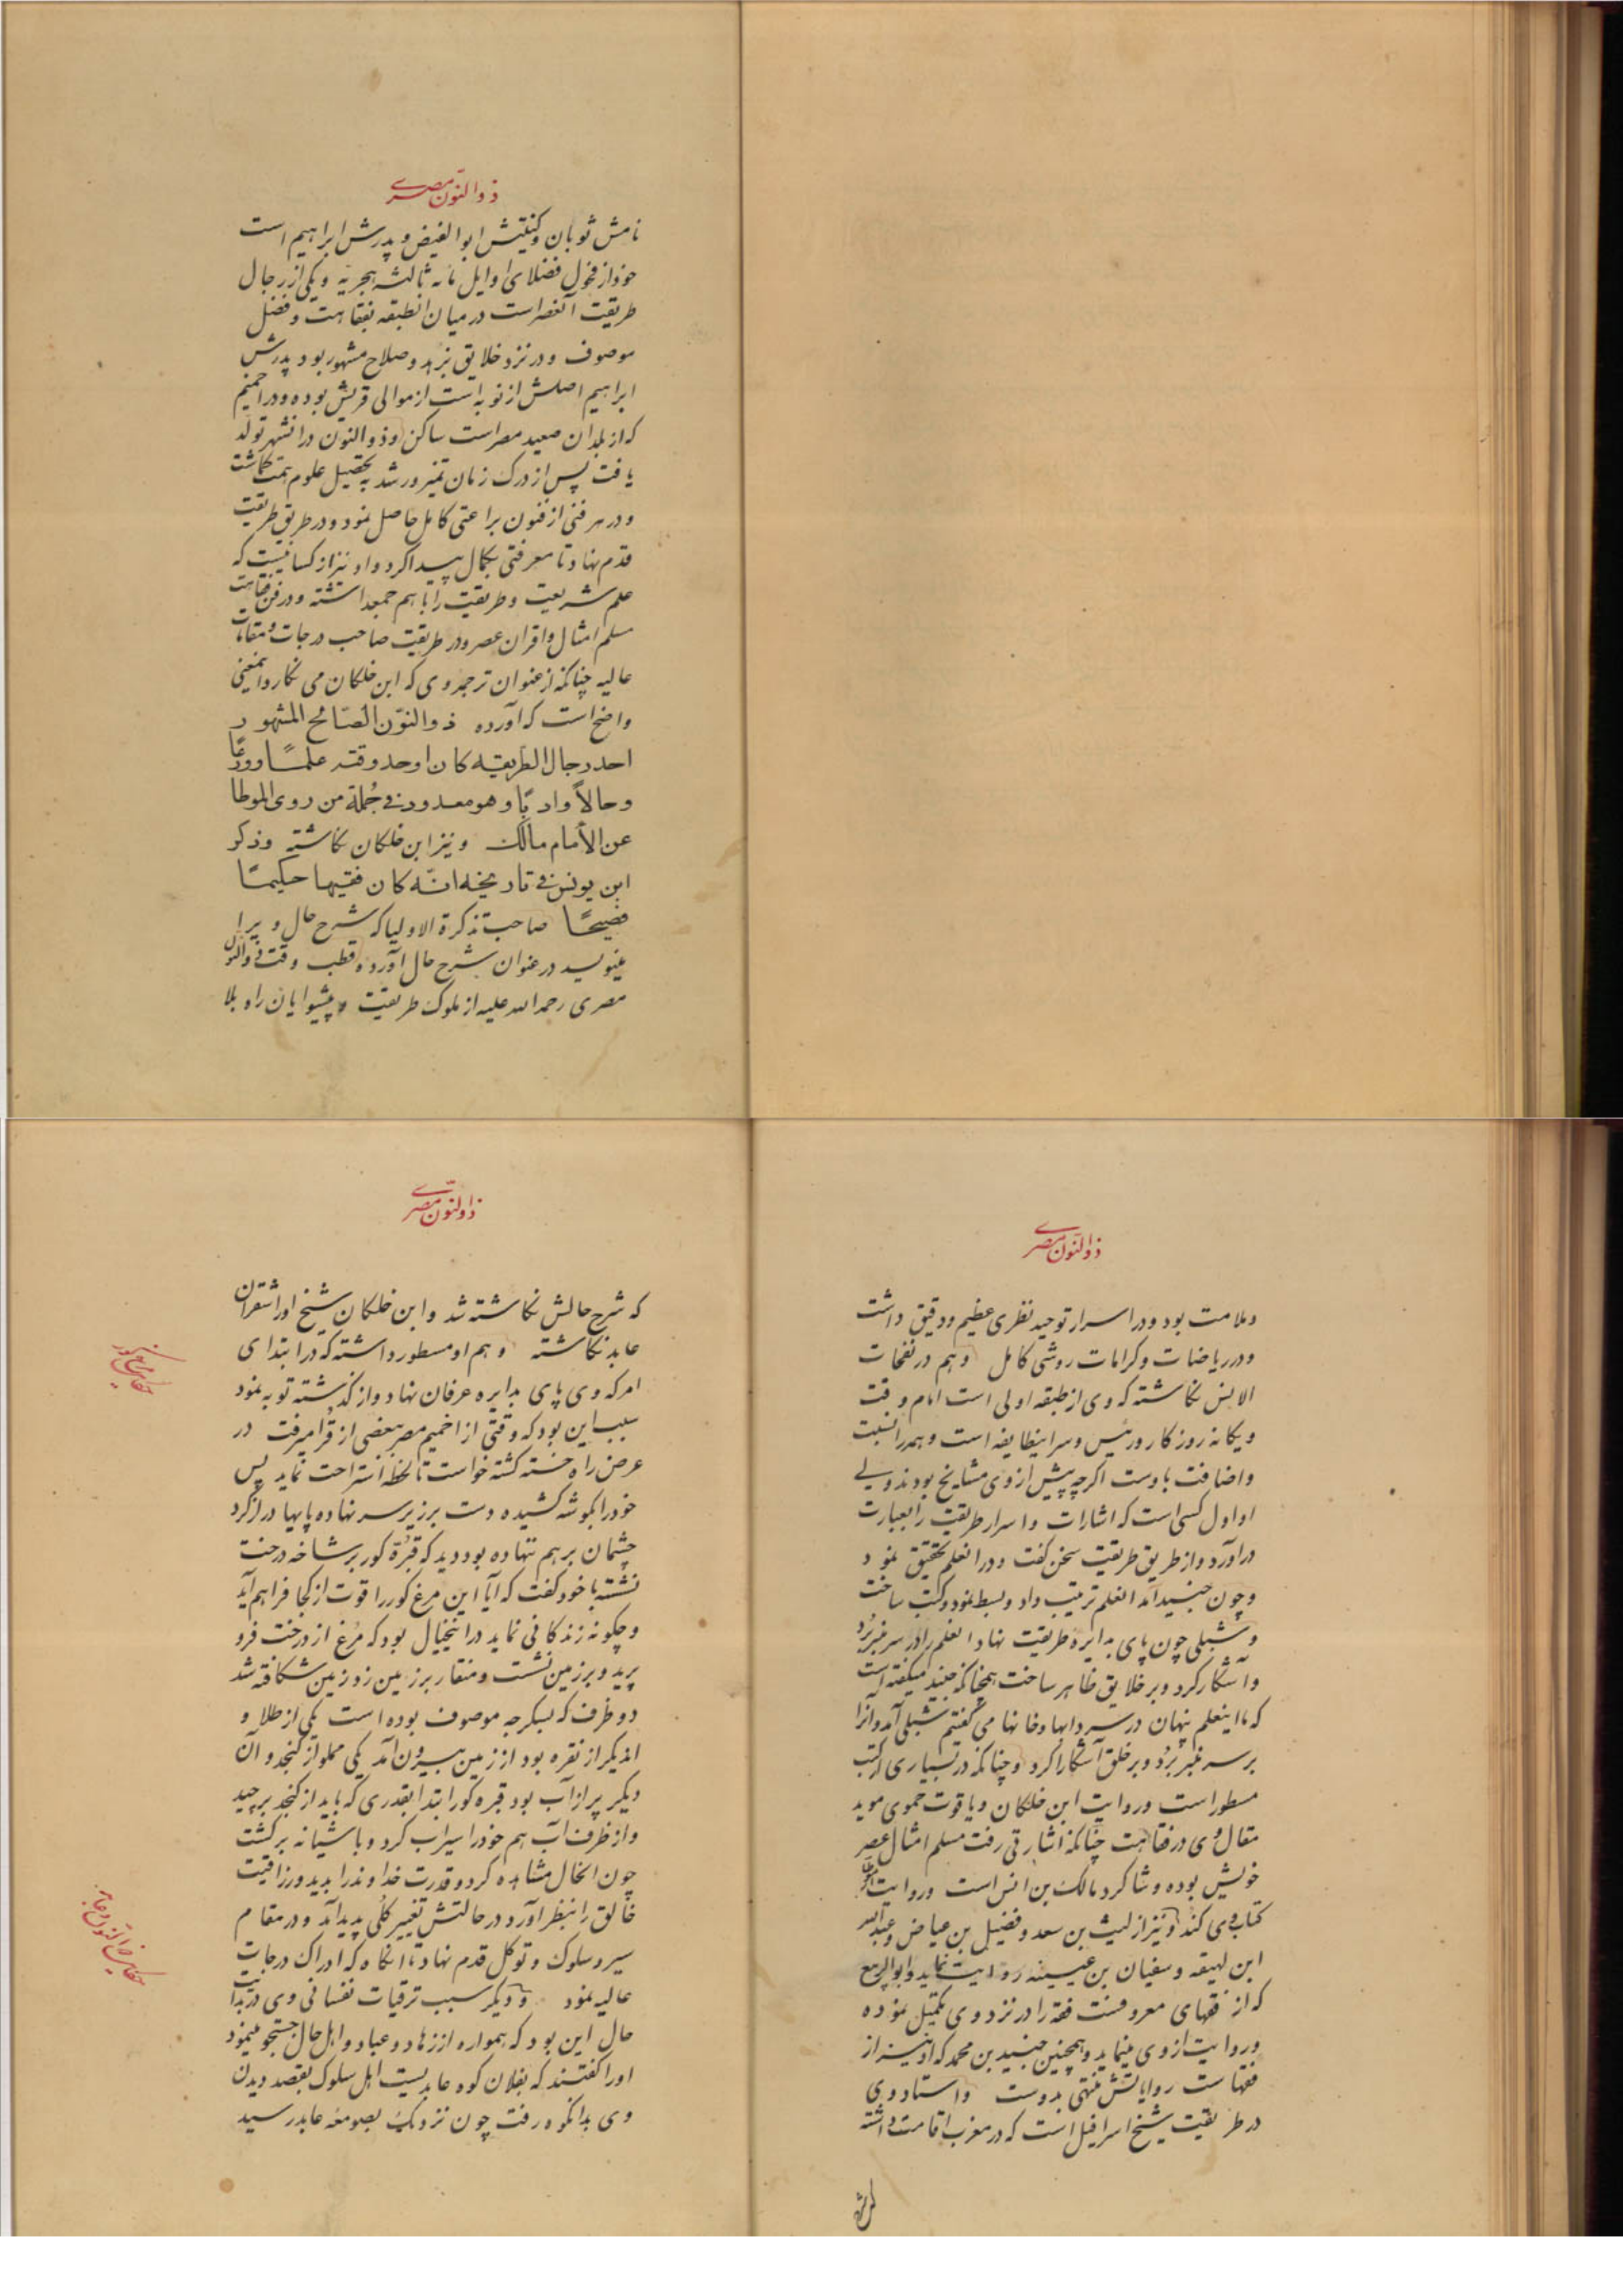 ذوالنون مصری
نامش ثوبان و کنیتش ابوالفیض و پدرش ابراهیم است
خود از فحول فضلای اوایل مائه ثالثه هجریه و یکی از رجال
طریقت آنعصر است در میان انطبقه بفقاهت و فضل
موصوف و در نزد خلایق بزهد و صلاح مشهور بود پدرش
ابراهیم اصلش از نوبه است از موالی قریش بوده و در اخمیم
که از بلدان صعید مصر است ساکن و ذوالنون در انشهر تولد
یافت پس از درک زمان تمیز و رشد بتحصیل علوم همت گماشت
و در هر فنی از فنون براعتی کامل حاصل نمود و در طریق طریقت
قدم نهاد تا معرفتی بکمال پیدا کرد و او نیز از کسانیست که
علم شریعت و طریقت را با هم جمع داشته و در فن فقاهت
مسلم امثال و اقران عصر و در طریقت صاحب درجات و مقامات
عالیه چنانکه از عنوان ترجمه وی که ابن خلکان می نگارد اینمعنی
واضح است که آورده ذوالنّون الصّالح المشهور
احد رجال الطریقه کان اوحد وقته علمًا و ورعًا
و حالاً و ادبًا و هو معدود فی جُملة من روی الموطا
عن الأمام مالک و نیز ابن خلکان نگاشته و ذکر
ابن یونس فی تاریخه انّه کان فقیها حکیمًا
فصیحًا صاحب تذکرة الاولیا که شرح حال ویرا
مینویسد در عنوان شرح حال آورده قطب وقت ذوالنون
مصری رحمه الله علیه از ملوک طریقت و پیشوایان راه بلا
ذوالنون مصری
و ملامت بود و در اسرار توحید نظری عظیم و دقیق داشت
و در ریاضات و کرامات روشی کامل و هم در نفحات
الانس نگاشته که وی از طبقه اولی است امام وقت
و یگانه روزگار و رئیس و سر اینطایفه است و همه را نسبت
و اضافت باوست اگرچه پیش از وی مشایخ بودند ولی
او اول کسی است که اشارات و اسرار طریقت را بعبارت
درآورد و از طریق طریقت سخن گفت و در انعلم تحقیق نمود
و چون جنید آمد انعلم ترتیب داد و بسط نمود و کتب ساخت
و شبلی چون پای بدایره طریقت نهاد انعلم را در سر منبر برد
و آشکار کرد و بر خلایق ظاهر ساخت همچنانکه جنید میگفته است
که ما اینعلم پنهان در سردابها و خانها می گفتیم شبلی آمد و انرا
بر سر منبر برد و بر خلق آشکارا کرد و چنانکه در بسیاری از کتب
مسطور است و روایت ابن خلکان و یاقوت حموی موید
مقال وی در فقاهت چنانکه اشارتی رفت مسلم امثال عصر
خویش بوده و شاگرد مالک بن انس است و روایت موطا
کتاب وی کند و نیز از لیث بن سعد و فضیل بن عیاض و عبدالله
ابن لهیعه و سفیان بن عیینه روایت نماید و ابوالربیع
که از فقهای معروفست فقه را در نزد وی تکمیل نموده
و روایت از وی مینماید و همچنین جنید بن محمد که او نیز از
فقهاست روایاتش منتهی بدوست و استاد وی
در طریقت شیخ اسرافیل است که در مغرب اقامت داشته
ذوالنون مصری
که شرح حالش نگاشته شد و ابن خلکان شیخ او را شقران
عابد نگاشته و هم او مسطور داشته که در ابتدای
امر که وی پای بدایره عرفان نهاد و از گذشته توبه نمود
سبب این بود که وقتی از اخمیم مصر ببعضی از قُرا میرفت در
عرض راه خسته گشته خواست تا لحظهٔ استراحت نماید پس
خود را بگوشه کشیده دست بر زیر سر نهاده پایها دراز کرد
چشمان برهم ننهاده بود دید که قبّره کور بر شاخه درخت
نشسته با خود گفت که آیا این مرغ کور را قوت از کجا فراهم آید
و چگونه زندگانی نماید در اینخیال بود که مرغ از درخت فرو
پرید و بر زمین نشست و منقار بر زمین زد زمین شکافته شد
دو ظرف که بسکرجه موصوف بوده است یکی از طلا و
اندیگر از نقره بود از زمین بیرون آمد یکی مملو از کنجد و آن
دیگر پر از آب بود قبره کور ابتدا بقدری که باید از کنجد برچید
و از ظرف آب هم خود را سیراب کرد و باشیانه برگشت
چون انحال مشاهده کرد و قدرت خداوند را بدید و رزاقیت
خالق را بنظر آورد در حالتش تغییر کلّی پدید آمد و در مقام
سیر و سلوک و توکل قدم نهاد تا انگاه که ادراک درجات
عالیه نمود و دیگر سبب ترقیات نفسانی وی در بدایت
حال این بود که همواره از زهاد و عباد و اهل حال جستجو مینمود
او را گفتند که بفلان کوه عابدیست اهل سلوک بقصد دیدن
وی بدانکوه رفت چون نزدیک بصومعه عابد رسید